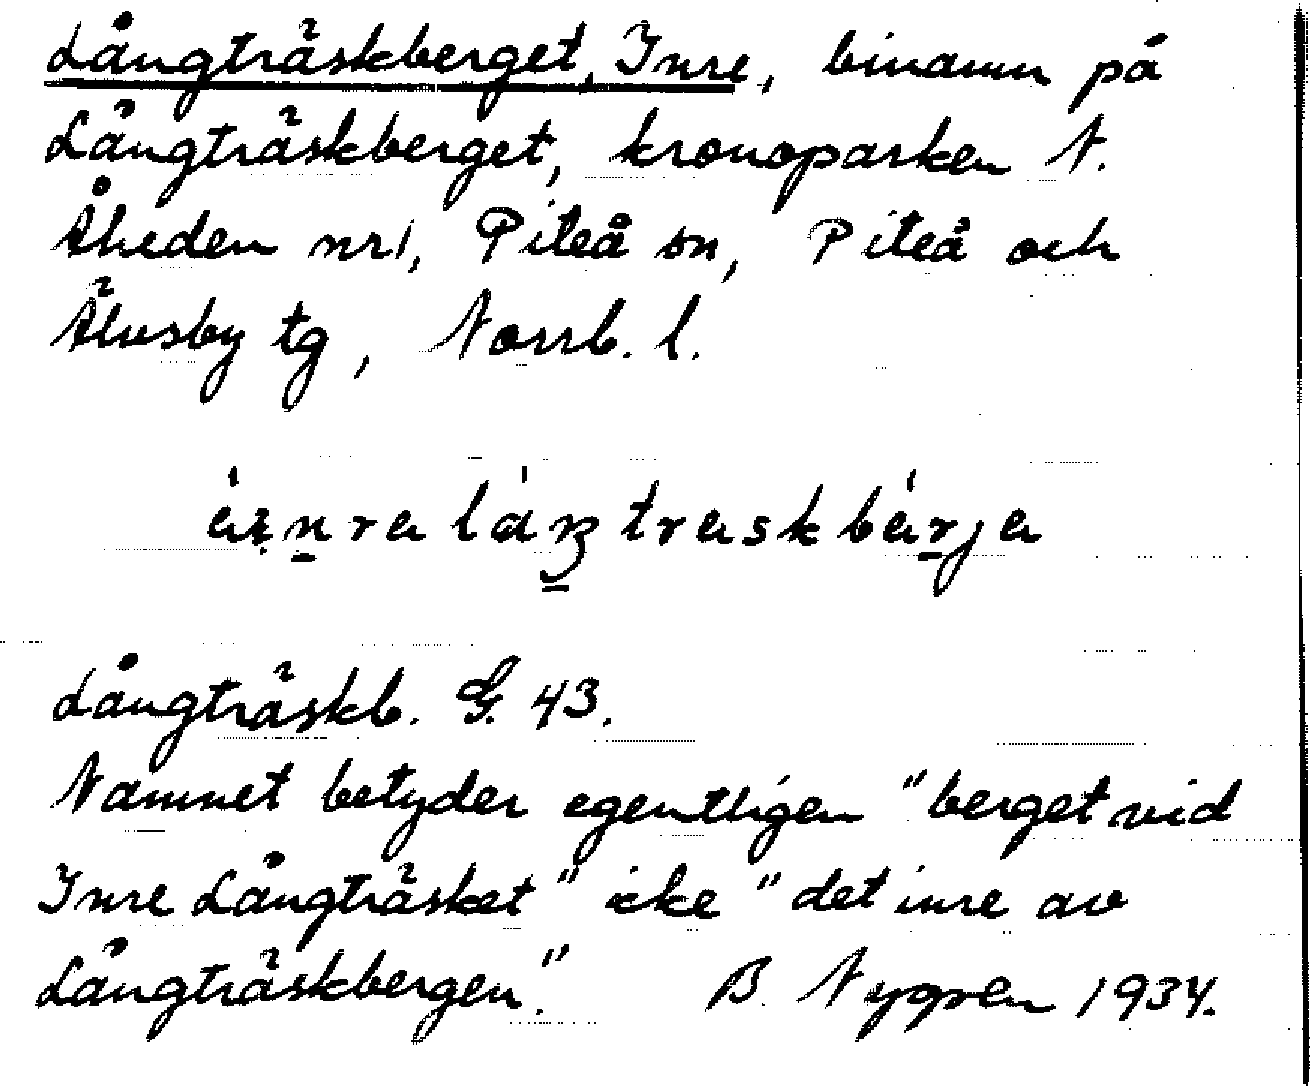 Långträskberget, Inre, binamn på
Långträskberget, kronoparken N.
Åheden nr 1, Piteå sn, Piteå och
Älvsby tg, Norrb. l.
Långträskb. G. 43.
Namnet betyder egentligen "berget vid
Inre Långträsket" icke "det inre av
Långträskbergen."
B. Nygren 1934.